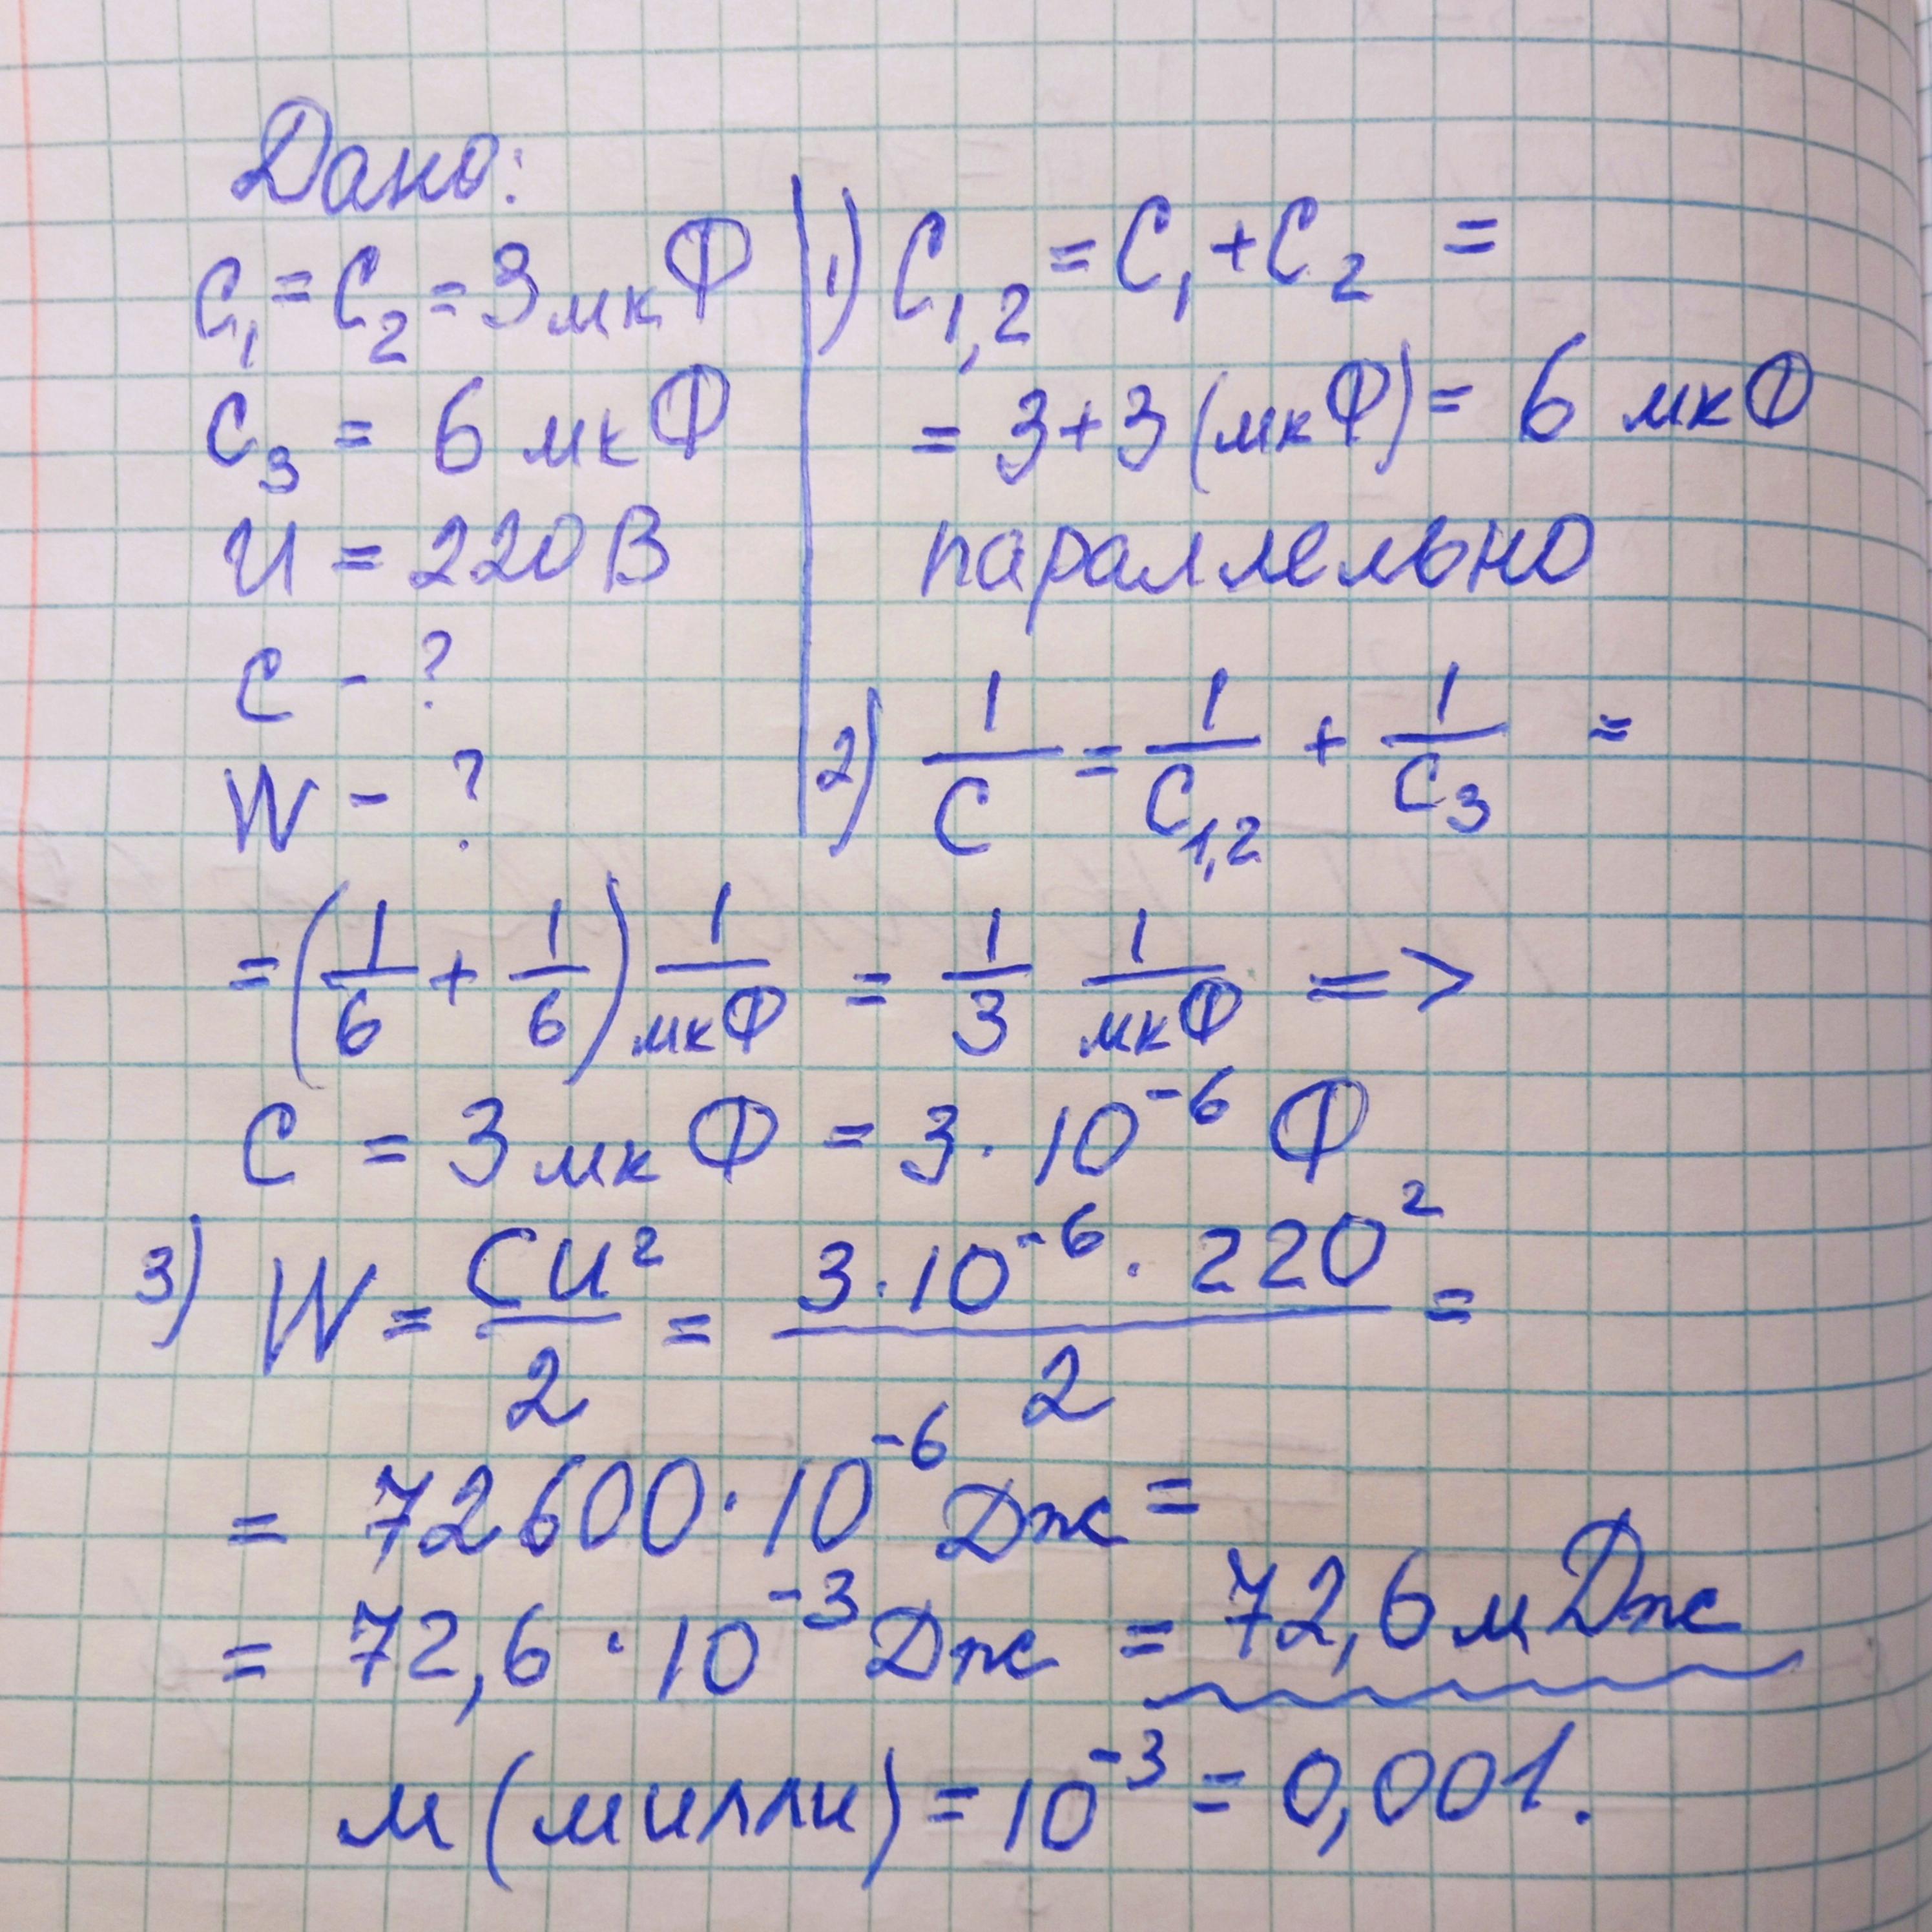 Дано:
C₁ = C₂ = 3 мкФ
C₃ = 6 мкФ
U = 220 В
C - ?
W - ?
1) C₁,₂ = C₁ + C₂ =
= 3 + 3 (мкФ) = 6 мкФ
параллельно
2) 1/C = 1/C₁,₂ + 1/C₃ =
= (1/6 + 1/6) 1/мкФ = 1/3 1/мкФ =>
C = 3 мкФ = 3 · 10⁻⁶ Ф
3) W = CU²/2 = 3 · 10⁻⁶ · 220²/2 =
= 72600 · 10⁻⁶ Дж =
= 72,6 · 10⁻³ Дж = 72,6 мДж
м (милли) = 10⁻³ = 0,001.